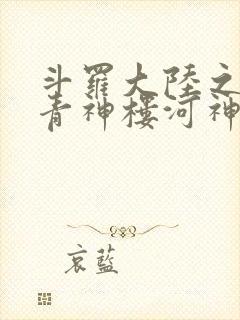 斗羅大陸之
青神樓河神
哀藍